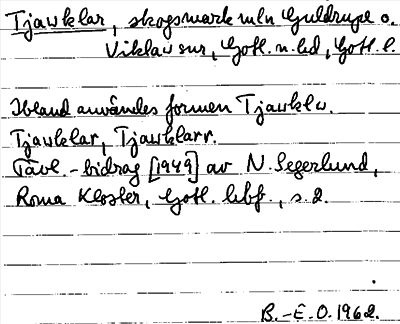 Tjawklar, skogsmark mln Guldrupe o.
Viklau snr, Gotl. n. hd, Gotl. l.
Ibland användes formen Tjawklu.
Tjawklar, Tjawklarr.
Tävl.-bidrag [1949] av N. Segerlund,
Roma Kloster, Gotl. lbf., s. 2.
B.-E.O. 1962.